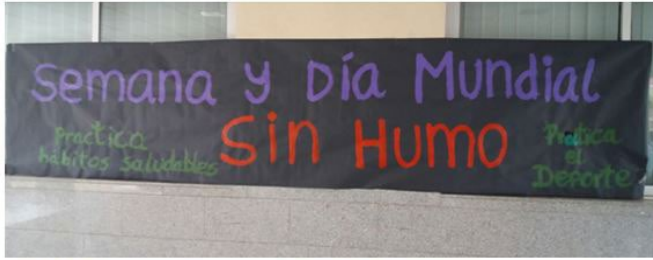 Semana y Día Mundial
Sin Humo
Practica
hábitos saludables
Pratica
el
Deporte